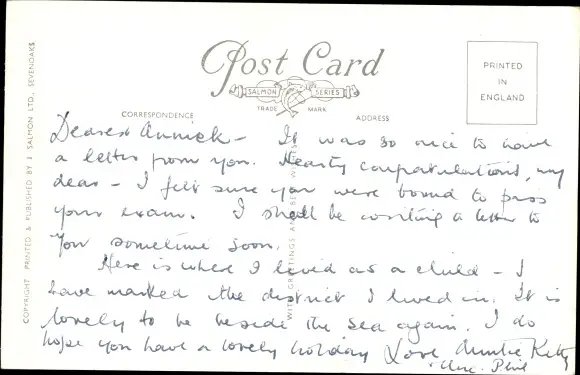 Post Card
SALMON SERIES
TRADE MARK
PRINTED
IN
ENGLAND
CORRESPONDENCE
ADDRESS
COPYRIGHT PRINTED & PUBLISHED BY J SALMON LTD., SEVENOAKS
WITH GREETINGS AND BEST WISHES
Dearest Annick – It was so nice to have
a letter from you. Hearty congratulations, my
dear – I felt sure you were bound to pass
your exam. I shall be writing a letter to
you sometime soon.
Here is where I lived as a child – I
have marked the district I lived in. It is
lovely to be beside the sea again. I do
hope you have a lovely holiday Love, Auntie Kitty
Unc. Phil